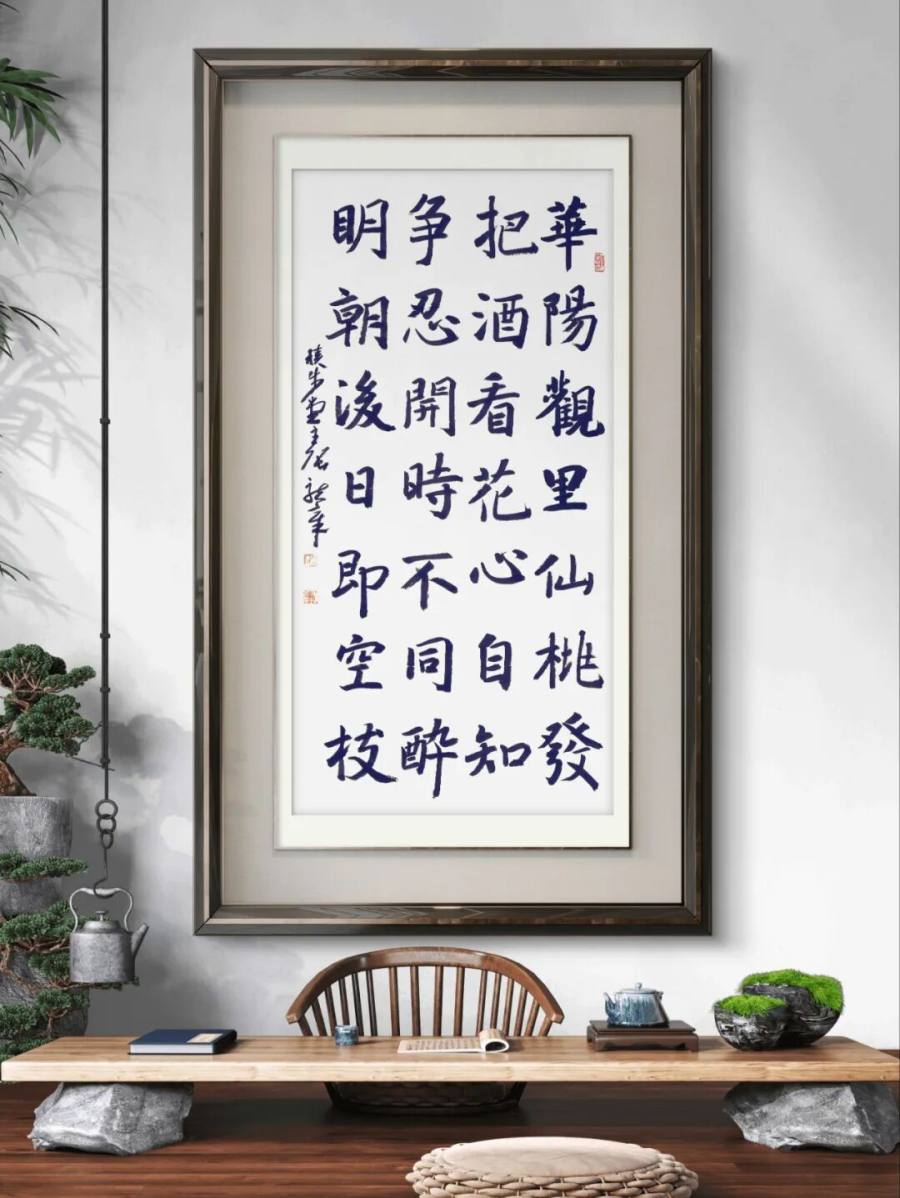 華陽觀里仙桃發
把酒看花心自知
争忍開時不同醉
明朝後日即空枝